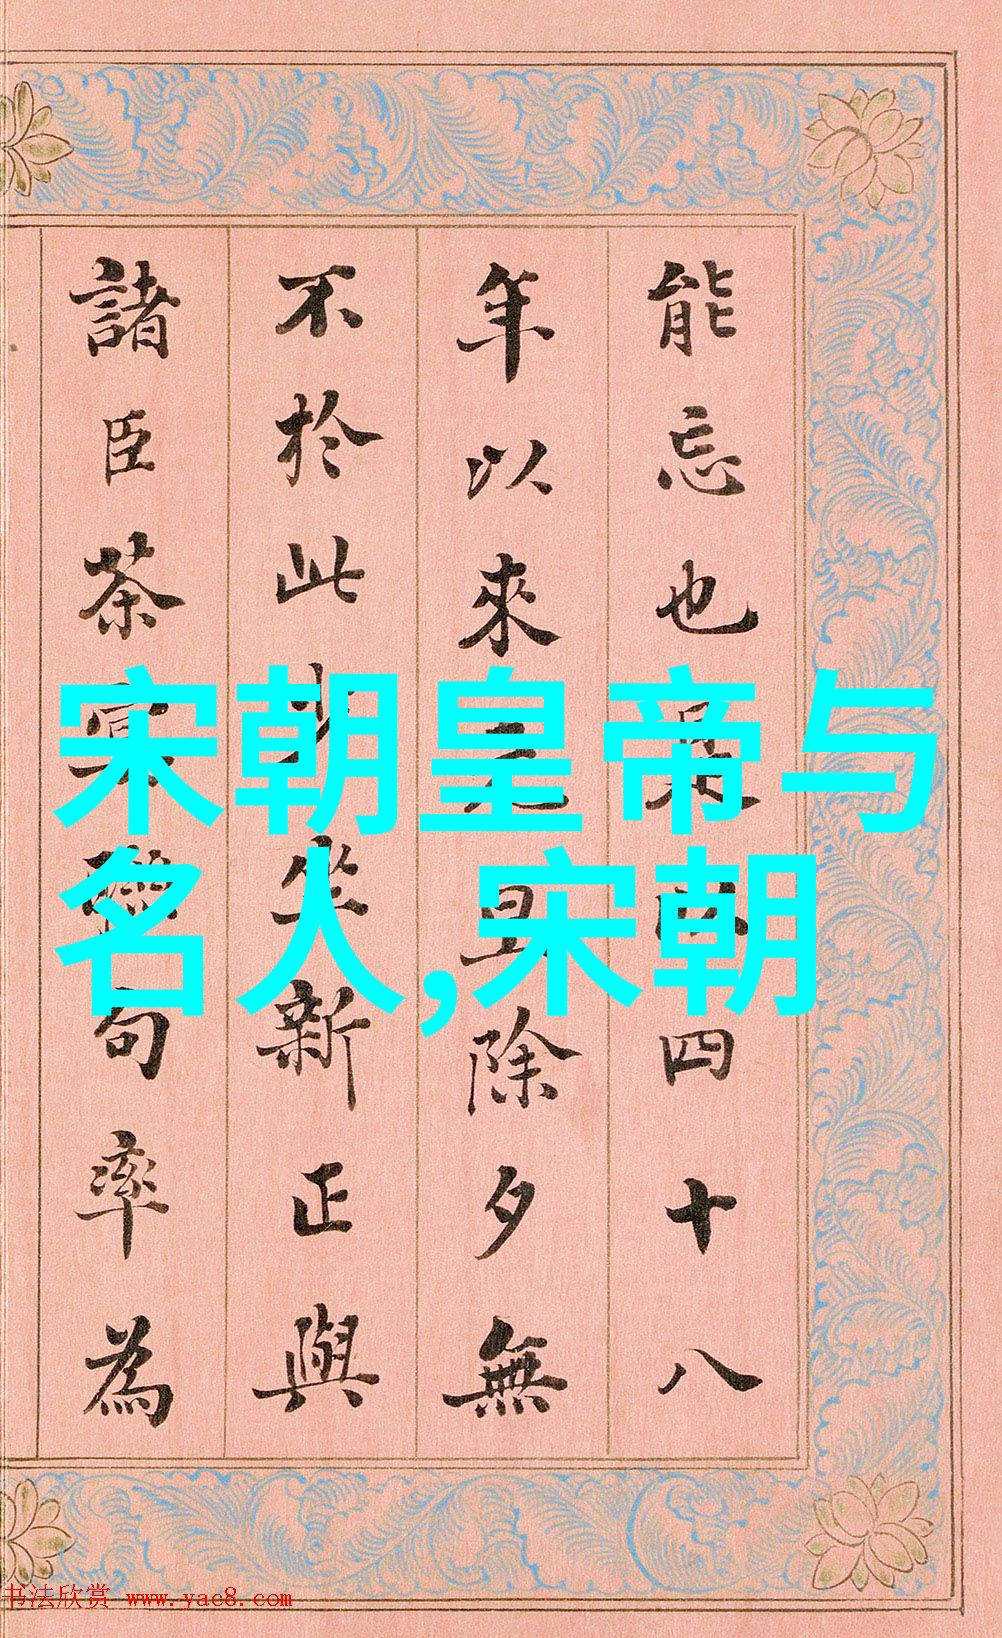 能忘也是四十八
年以來元旦除夕無
不於此少坐新正與
諸臣茶宴聯句率為
宋朝皇帝与
名人,宋朝
书法欣赏 www.yac8.com